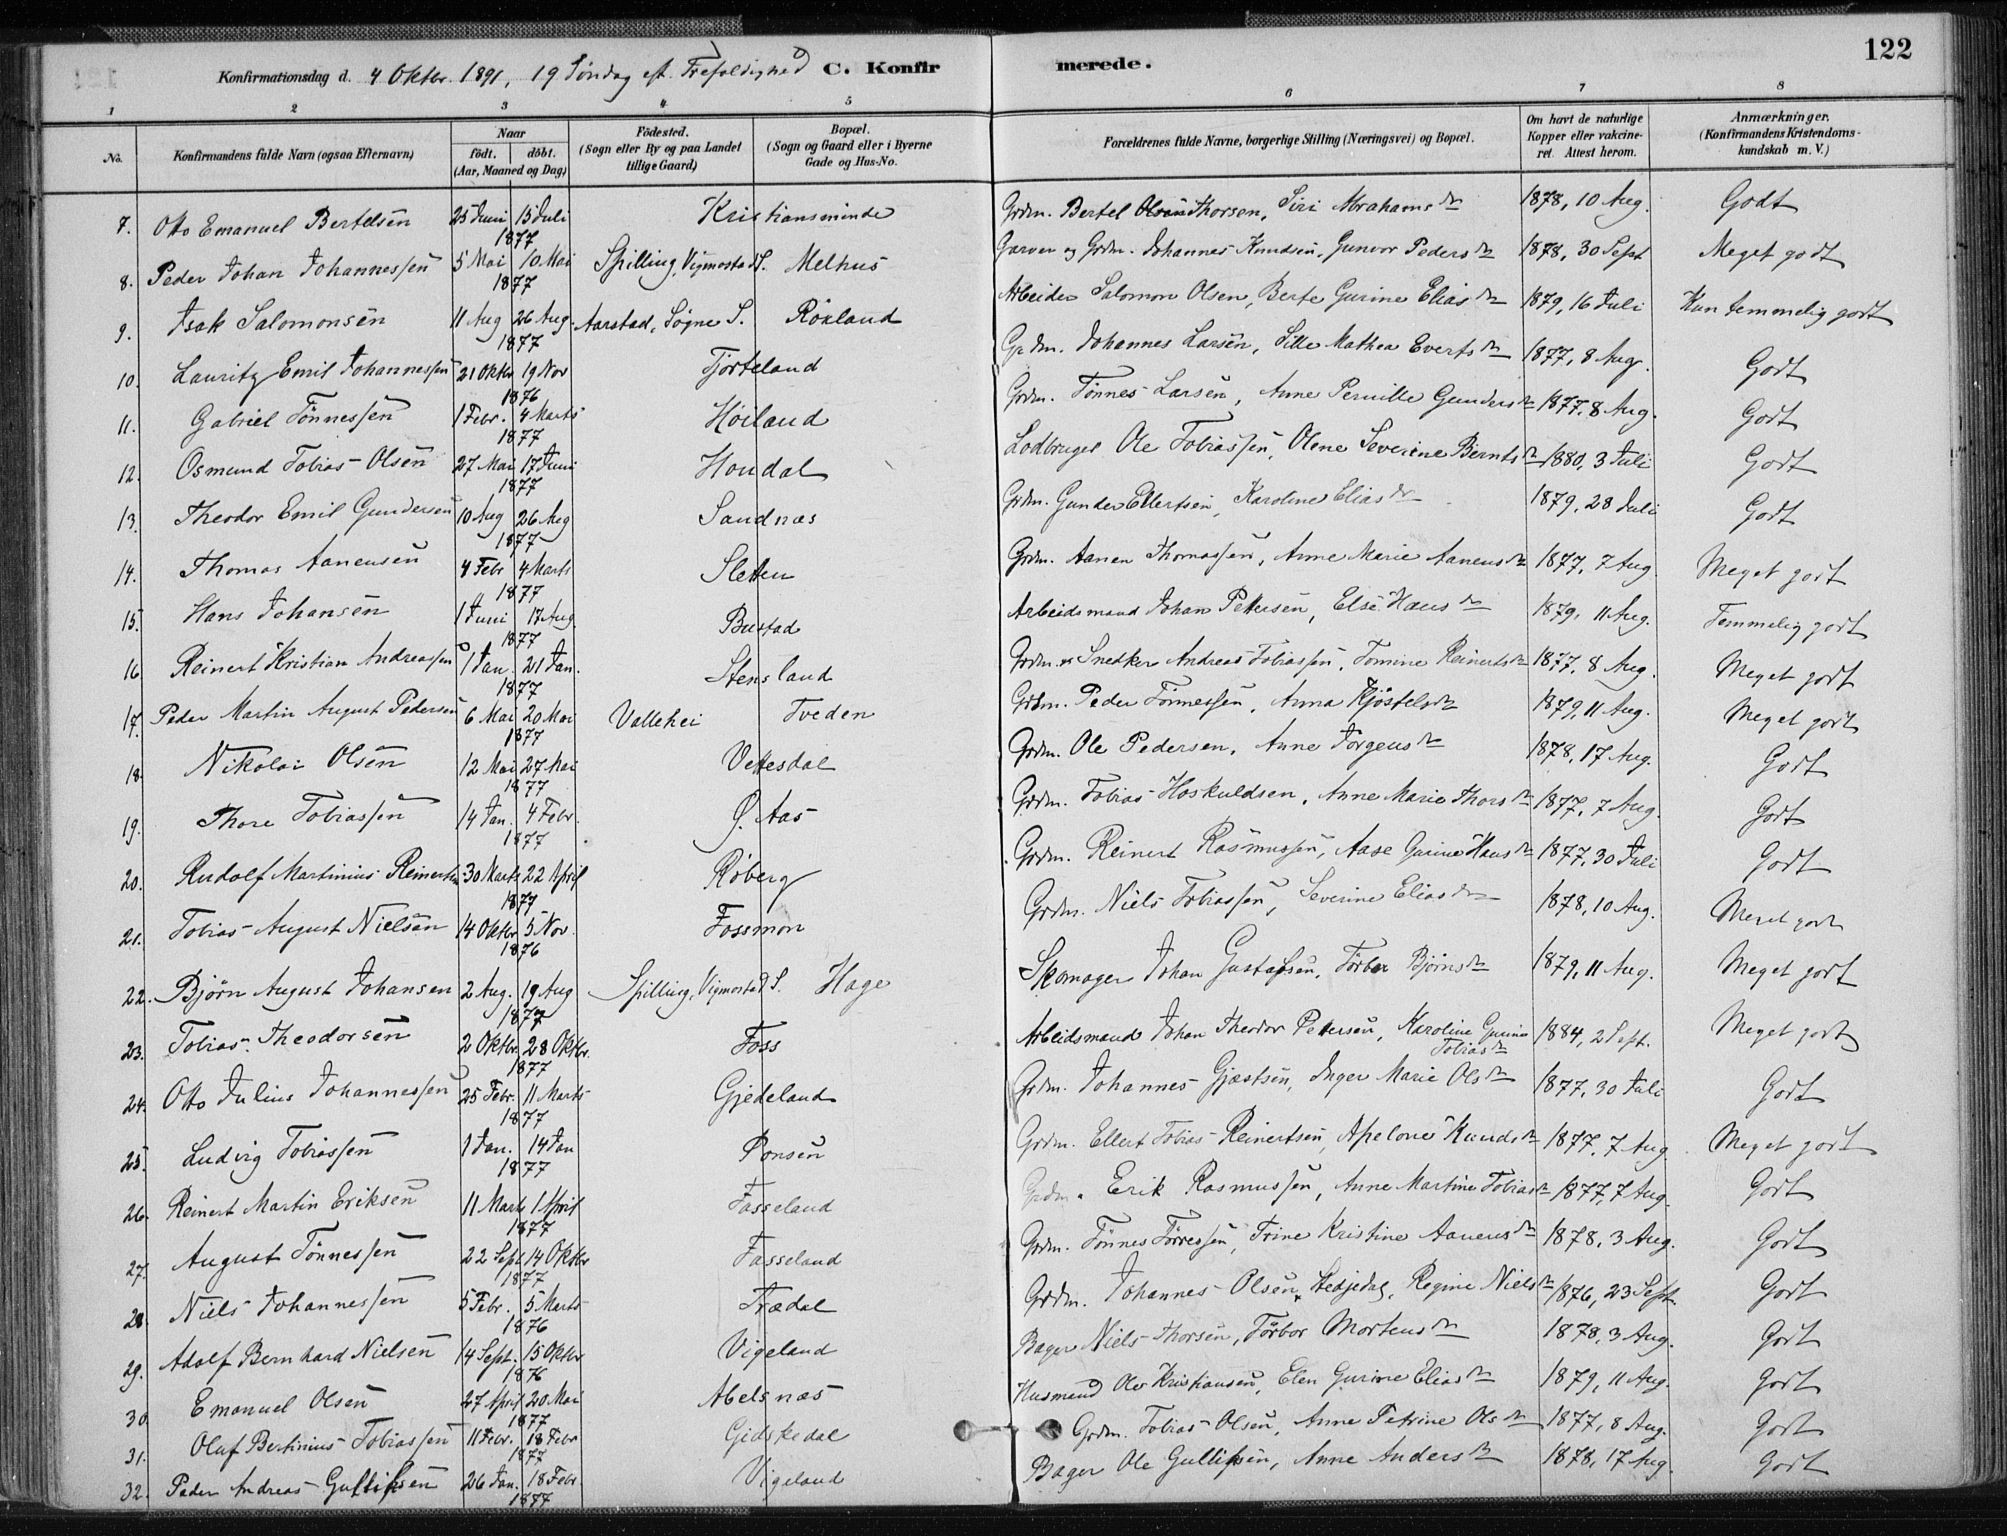 122
Konfirmationsdag d. 4 Oktbr. 1891, 19 Söndag eft. Trefoldighed C. Konfirmerede.
1 2 3 4 5 6 7 8
No. Konfirmandens fulde Navn (ogsaa Efternavn) Naar födt. döbt. (Aar, Maaned og Dag) Födested. (Sogn eller By og paa Landet tillige Gaard) Bopæl. (Sogn og Gaard eller i Byerne Gade og Hus-No. Forældrenes fulde Navne, borgerlige Stilling (Næringsvei) og Bopæl. Om havt de naturlige Kopper eller vakcineret. Attest herom. Anmærkninger. (Konfirmandens Kristendomskundskab m. V.)
7. Otto Emanuel Bertelsen 25 Juni 15 Juli 1877 Kristiansminde Grdm. Bertel Thorsen, Siri Abrahamsdtr 1878, 10 Aug. Godt
8. Peder Johan Johannessen 5 Mai 10 Mai 1877 Spilling, Vigmostad S. Melhus Garver og Grdm. Johannes Knudsen, Gunvor Pedersdtr 1878, 30 Sept Meget godt
9. Isak Salomonsen 11 Aug 26 Aug. 1877 Aarstad, Søgne S. Röxland Arbeider Salomon Olsen, Berte Gurine Eliasdtr 1879, 16 Juli Kun temmelig godt
10. Lauritz Emil Johannessen 21 Oktbr 19 Nov 1876 Tjörteland Grdm. Johannes Larsen, Sille Mathea Evertsdtr 1877, 8 Aug. Godt
11. Gabriel Tönnessen 1 Febr. 4 Marts 1877 Höiland Grdm. Tönnes Larsen, Anne Pernille Gundersdtr 1877, 8 Aug. Godt
12. Osmund Tobias Olsen 27 Mai 17 Juni 1877 Houdal Lodbruger Ole Tobiassen, Olene Severine Berntsdtr 1880, 3 Juli Godt
13. Theodor Emil Gundersen 10 Aug 26 Aug 1877 Sandnæs Grdm. Gunder Ellertsen, Karoline Eliasdtr 1879, 28 Juli Godt
14. Thomas Aanensen 4 Febr 4 Marts 1877 Sletten Grdm. Aanen Thomassen, Anne Marie Aanensdtr 1877, 7 Aug. Meget godt
15. Hans Johansen 1 Juni 17 Aug. 1877 Bustad Arbeidsmand Johan Pettersen, Else Hansdtr 1879, 11 Aug. Temmelig godt
16 Reinert Kristian Andreassen 1 Jan. 21 Jan. 1877 Stensland Grdm. og Snedker Andreas Tobiassen, Tomine Reinertsdtr 1877, 8 Aug. Meget godt
17. Peder Martin August Pedersen 6 Mai 20 Mai 1877 Vallehei Tveden Grdm. Peder Tönnessen, Anna Kjöstelsdtr 1879, 11 Aug. Meget godt
18. Nikolai Olsen 12 Mai 27 Mai 1877 Vettesdal Grdm. Ole Pedersen, Anne Jörgensdtr 1878, 17 Aug. Godt
19. Thore Tobiassen 14 Jan. 4 Febr. 1877 Ø. Aas Grdm. Tobias Hoskuldsen, Anne Marie Thorsdtr 1877, 7 Aug. Godt
20. Rudolf Martinius Reinertsen 30 Marts 22 April 1877 Röberg Grdm. Reinert Rasmussen, Aase Gurine Hansdtr 1877, 30 Juli Godt
21. Tobias August Nielsen 14 Oktbr 5 Nov. 1876 Fossmon Grdm. Niels Tobiassen, Severine Eliasdtr 1878, 10 Aug. Meget godt
22. Björn August Johansen 2 Aug. 19 Aug 1877 Spilling, Vigmostad S. Hage Skomager Johan Gustafsen, Törbor Björnsdtr 1879, 11 Aug. Meget godt
23. Tobias Theodorsen 2 Oktbr. 28 Oktbr. 1877 Foss Arbeidsmand Johan Theodor Pettersen, Karoline Gurine Tobiasdtr 1884, 2 Sept. Meget godt
24. Otto Julius Johannessen 25 Febr. 11 Marts 1877 Gjedeland Grdm. Johannes Gjæstsen, Inger Marie Olsdtr 1877, 30 Juli Godt
25. Ludvig Tobiassen 1 Jan. 14 Jan 1877 Ponsen Grdm. Ellert Tobias Reinertsen, Apelone Knudsdtr 1877, 7 Aug. Meget godt
26. Reinert Martin Eriksen 11 Marts 1 April 1877 Fasseland Grdm. Erik Rasmussen, Anne Martine Tobiasdtr 1877, 7 Aug. Godt
27. August Tönnessen 22 Sept 14 Oktbr 1877 Fasseland Grdm. Tönnes Törressen, Trine Kristine Aanensdtr 1878, 3 Aug. Godt
28. Niels Johannessen 5 Febr. 5 Marts 1876 Trædal Grdm. Johannes Olsen Stedjedal, Regine Nielsdtr 1876, 23 Sept. Godt
29. Adolf Bernhard Nielsen 14 Sept. 15 Oktbr 1876 Vigeland Bager Niels Thorsen, Törbor Mortensdtr 1878, 3 Aug. Godt
30. Emanuel Olsen 27 April 20 Mai 1877 Abelsnæs Husmand Ole Kristiansen, Elen Gurine Eliasdtr 1879, 11 Aug. Godt
31. Oluf Bertinius Tobiassen 11 Febr. 18 Febr 1877 Gidskedal Grdm. Tobias Olsen, Anne Petrine Olsdtr 1877, 8 Aug. Godt
32. Peder Andreas Gulliksen 26 Jan. 18 Febr. 1877 Vigeland Bager Ole Gulliksen, Anne Andersdtr 1878, 17 Aug. Godt